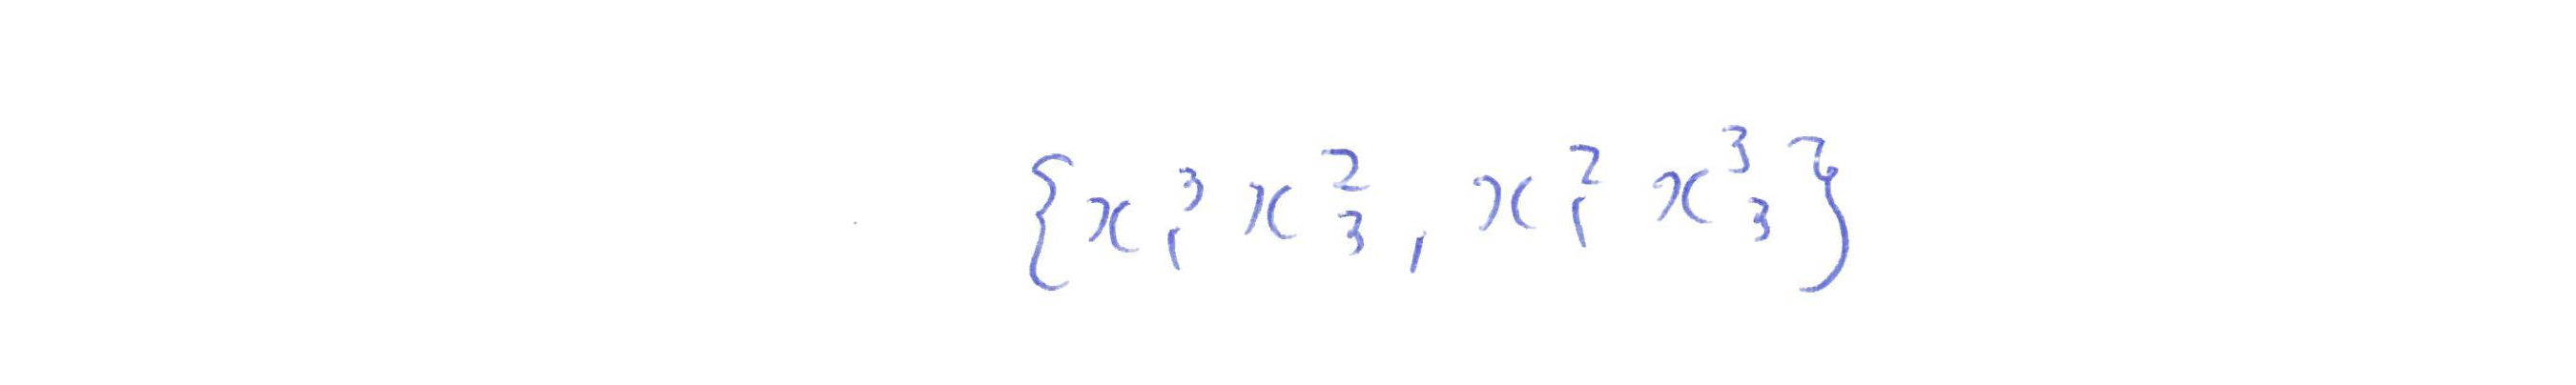 \{ x_1^3 x_3^2 , x_1^2 x_3^3 \}